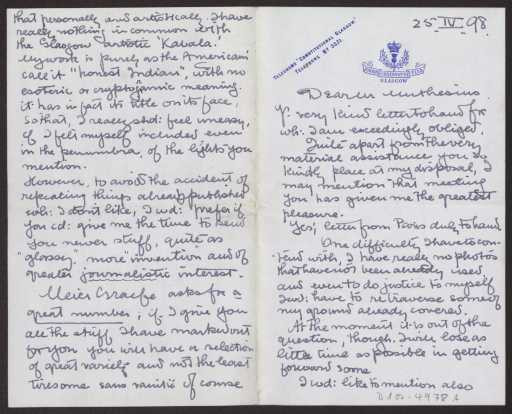 25 IV 98.
TELEGRAMS "CONSTITUTIONAL GLASGOW"
TELEPHONE Nº 3021.
GLASGOW
Dear Mr Muthesius
Yr. very kind letter to hand for
wh: I am exceedingly obliged.
Quite apart from the very
material assistance you so
kindly place at my disposal, I
may mention that meeting
you has given me the greatest
pleasure.
Yes, letter from Paris duly to hand
One difficulty I have to con-
tend with, I have really no photos
that have not been already used
and even to do justice to myself
I wd: have to re traverse some of
my ground already covered.
At the moment it is out of the
question, though I will lose as
little time as possible in getting
forward some
I wd: like to mention also
that personally and artistically I have
really nothing in common with
the Glasgow artistic "Kabala".
My work is purely as the Americans
call it "honest Indian", with no
esoteric or cryptogamic meaning.
it has in fact its title on its face,
so that, I really shd: feel uneasy,
if I felt myself included even
in the penumbra, of the lights you
mention.
However, to avoid the accident of
repeating things already published
wh: I don't like, I wd: prefer if
you cd: give me the time to send
you newer stuff, quite as
"glossy" more invention and of
greater journalistic interest.
Meier Graefe asks for a
great number; if I give you
all the stuff I have marked out
for you you will have a selection
of great variety and not the least
tiresome sans vanité of course
D 102-4978 a